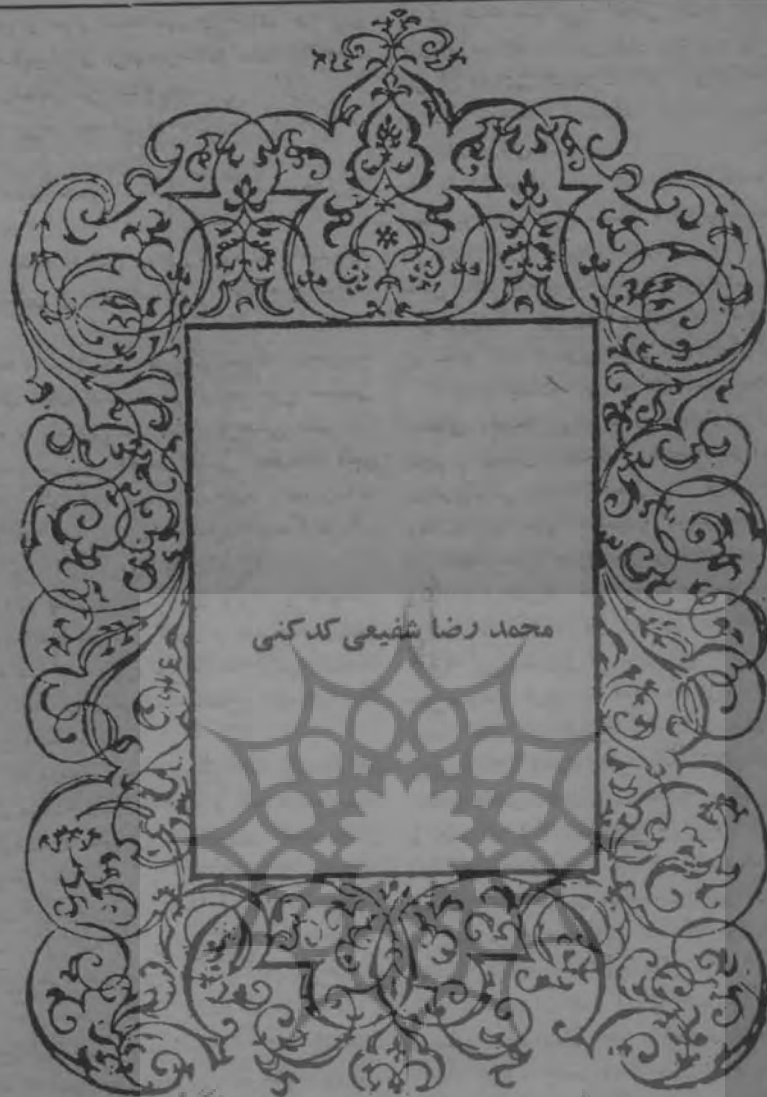 محمد رضا شفیعی کدکنی